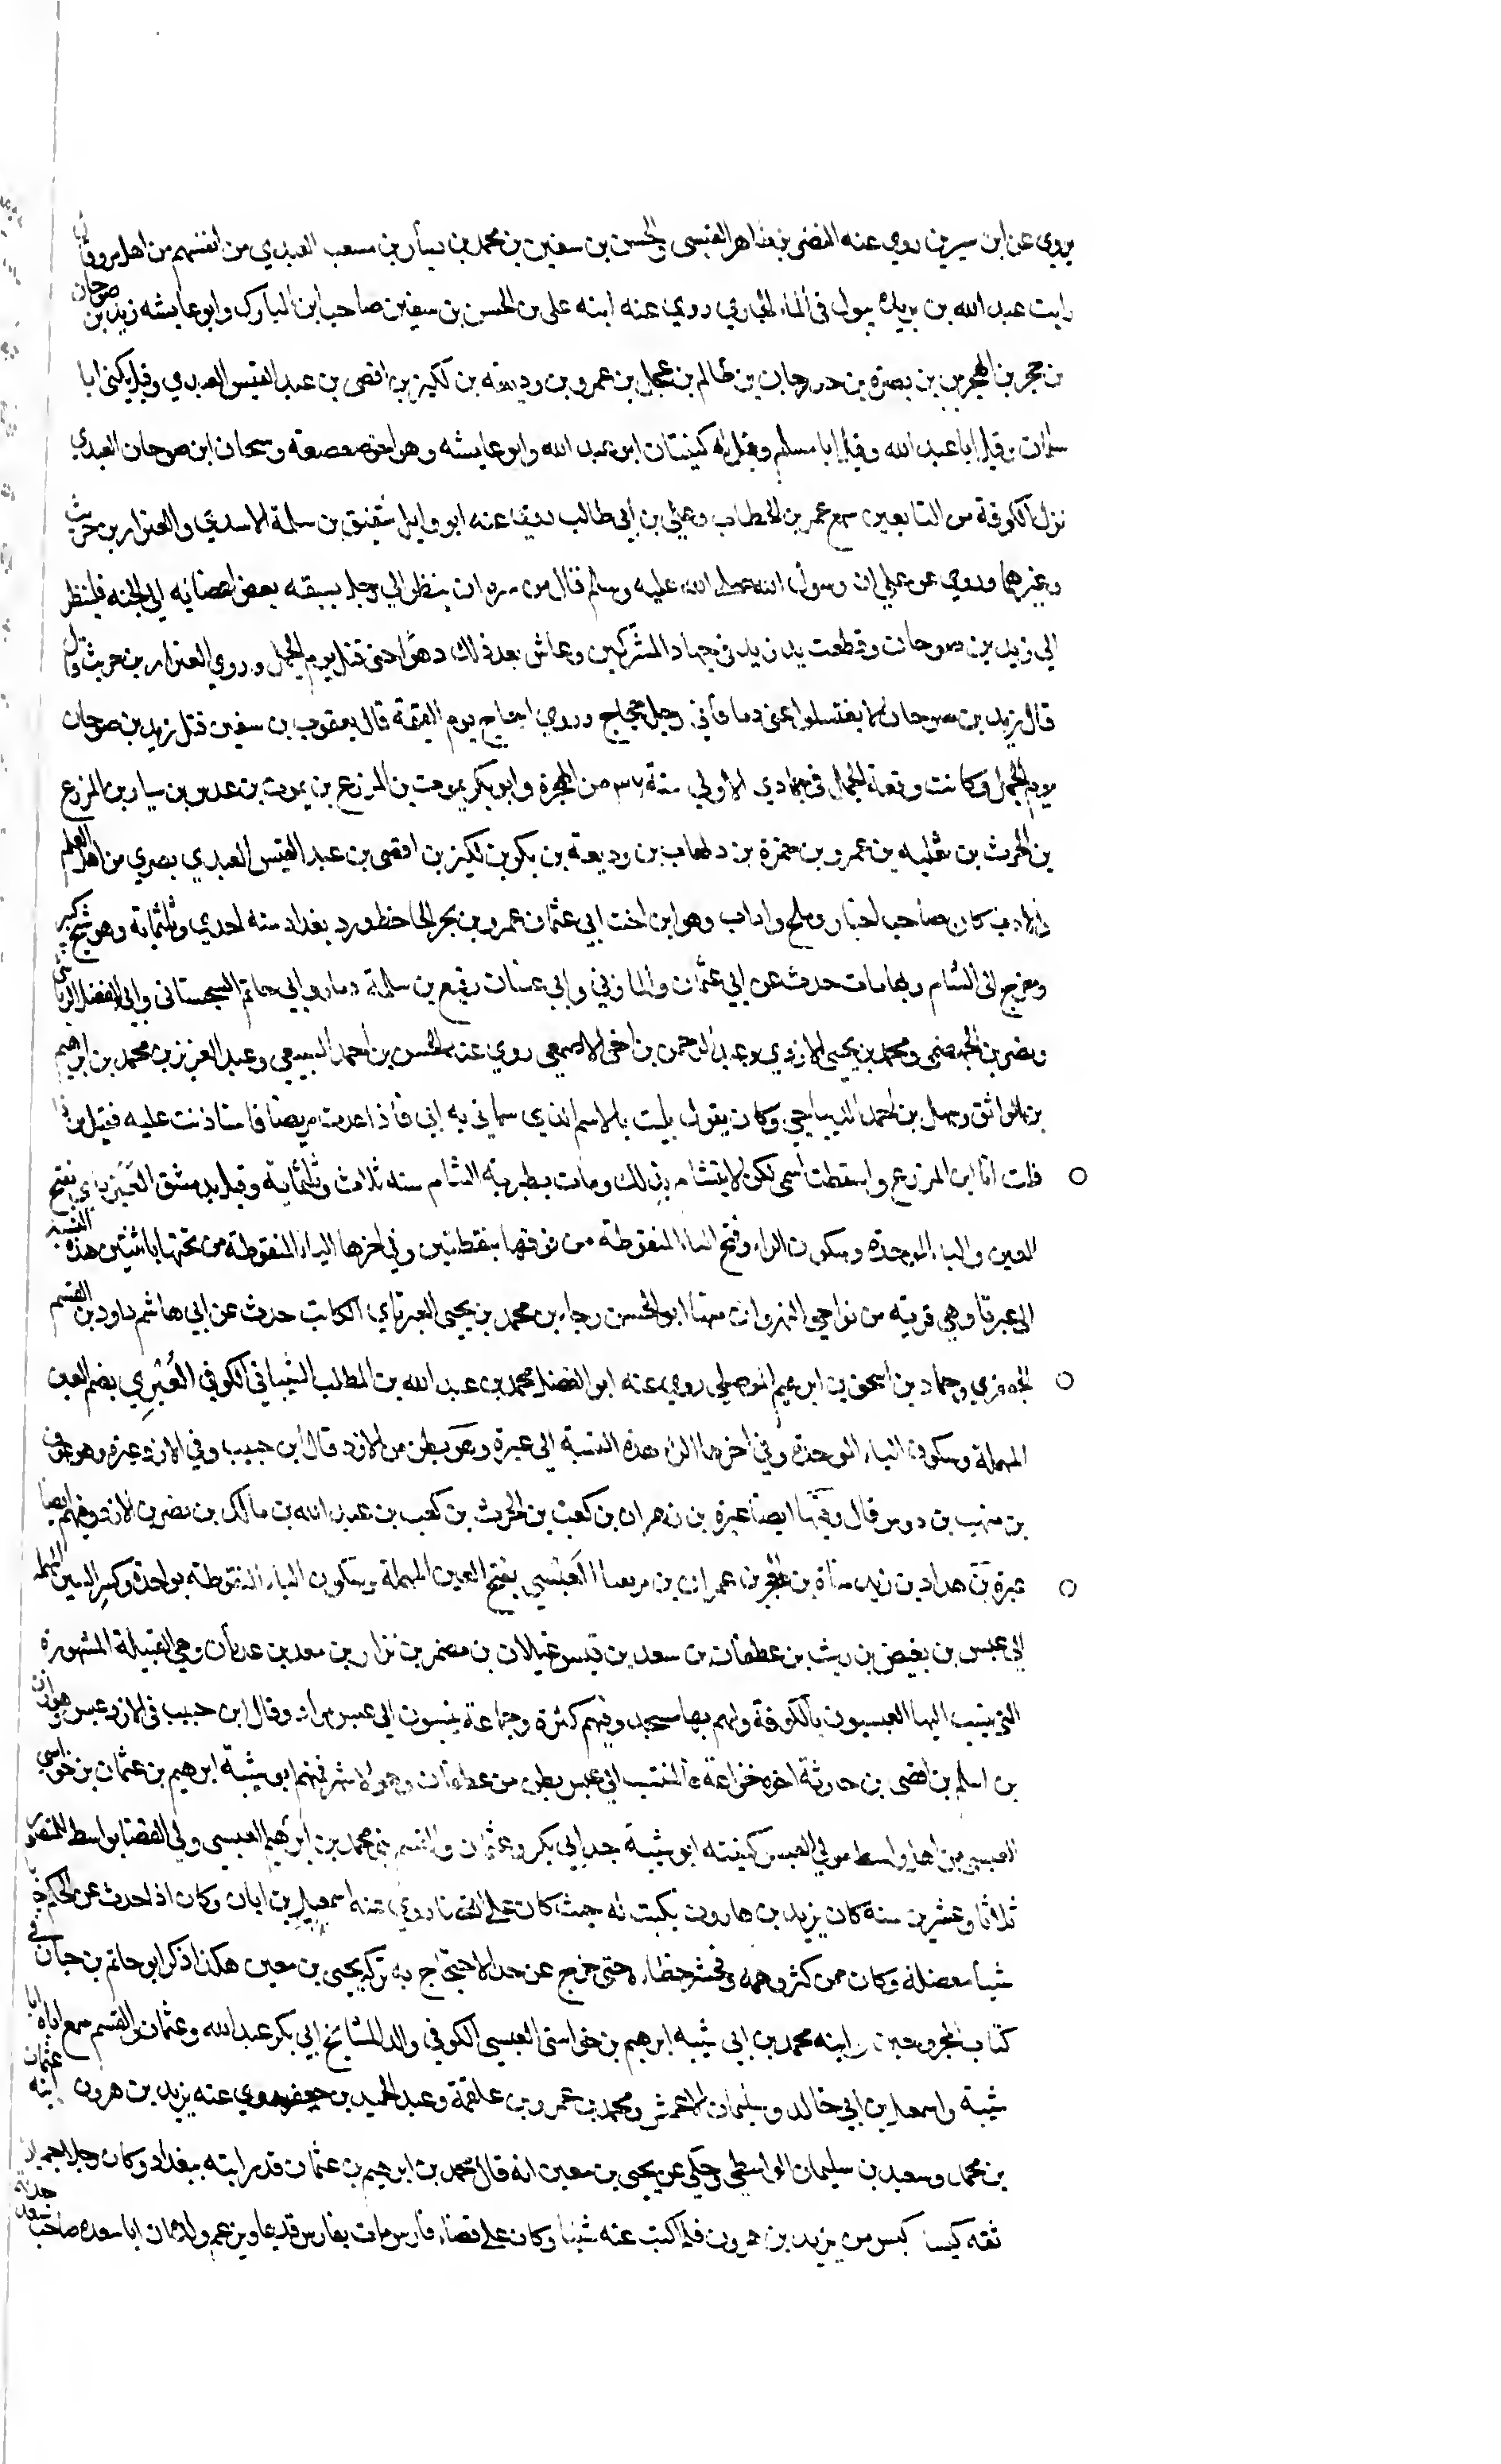 يروي عن ابن سيرين روي عنه النضر بن شاهر القيسي والحسن بن سفين بن محمد بن سيار بن مسعب العبدي من انفسهم من اهل مرو قال
رايت عبد الله بن بريدة يبول في الماء الجاري روي عنه ابنه علي بن الحسن بن سفين صاحب ابن المبارك وابو عايشه زيد بن صوحان
بن حجر بن الهجرس بن صبرة بن حدرجان بن ظالم بن عجل بن عمرو بن وديعه بن لكيز بن افصى بن عبد القيس العبدي وقيل يكنى ابا
سلمان وقيل ابا عبد الله وقيل ابا مسلم وقيل له كنيتان ابو عبد الله وابو عايشه وهو اخو صعصعة وسحان ابن صوحان العبدي
نزل الكوفة من التابعين سمع عمر بن الخطاب وعلي بن أبي طالب روي عنه ابو وايل شقيق بن سلمة الاسدي والعيزار بن حريث
وغيرهما وروي عن علي ان رسول الله صلى الله عليه وسلم قال من سره ان ينظر الي رجل يسبقه بعض اعضايه الي الجنه فلينظر
الي زيد بن صوحان وقطعت يد زيد في جهاد المشركين وعاش بعد ذلك دهرا حتى قتل يوم الجمل وروي العيزار بن حريث قال
قال زيد بن صوحان لا تغسلوا عني دما فأني رجل محجاج وروي احاج يوم القيمة قال يعقوب بن سفين قتل زيد بن صوحان
يوم الجمل وكانت وقعة الجمل في جمادي الاولي سنة ٣٦ من الهجرة وابو بكر يموت بن المزرع بن يموت بن عدس بن سيار بن المزرع
بن الحرث بن ثعلبه بن عمرو بن ضمرة بن دلهاب بن وديعة بن بكر بن لكيز بن افصى بن عبد القيس العبدي بصري من اهل العلم
والادب كان صاحب اخبار وملح واداب وهو ابن اخت ابي عثمان عمرو بن بحر الجاحظ ورد بغداد سنه احدي وثلثماية وهو شيخ كبير
وخرج الى الشام وبها مات حدث عن ابي عثمان المازني وابي غسان رفيع بن سلمة دماذ وابي حاتم السجستاني وابي الفضل الرياشي
ونصر بن الجهضمي ومحمد بن يحيي الازدي وعبد الرحمن بن اخي الاصمعي روي عنه الحسن بن احمد السبيعي وعبد العزيز بن محمد بن ابرهيم
بن الواثق وسهل بن احمد الديباجي وكان يقول بليت بالاسم الذي سماني به ابي فأذا عدت مريضا فاستاذنت عليه فقيل من ذا
قلت انا ابن المزرع واسقطت اسمي لكن لا يتشام بذلك ومات بطبرية الشام سنه ثلاث وثلثماية وقيل بدمشق العَبَرتاي بفتح
العين والباء الموحدة وسكون الراء وفتح التاء المنقوطة من فوقها بنقطتين وفي اخرها الياء المنقوطة من تحتها باثنتين هذه النسبة
الي عبرتا وهي قرية من نواحي النهروان منها ابو الحسن رجاء بن محمد بن يحيى العبرتاي الكاتب حدث عن ابي هاشم داود بن القسم
الجعفري وحماد بن اسحق بن ابرهيم الموصلي روي عنه ابو الفضل محمد بن عبد الله بن المطلب الشيباني الكوفي العُبْرِي بضم العين
المهملة وسكون الباء الموحدة وفي اخرها الراء هذه النسبة الي عبرة وهو بطن من الازد قال ابن حبيب وفي الازد عبرة وهو عوف
بن منهب بن دوس قال وفيها ايضا عبرة بن زهران بن كعب بن الحرث بن كعب بن عبد الله بن مالك بن نصر بن الازد وفيهم ايضا
عبرة بن هداد بن زيد مناة بن الحجر بن عمران بن مزيقيا العَبْسي بفتح العين المهملة وسكون الباء المنقوطة بواحدة وكسر السين المهملة
الي عبس بن بغيض بن ريث بن غطفان بن سعد بن قيس غيلان بن مضر بن نزار بن معد بن عدنان وهي القبيلة المشهورة
التي ينسب اليها العبسيون بالكوفة ولهم بها مسجد وفيهم كثرة وجماعة ينسبون الي عبس مراد وقال ابن حبيب في الازد عبس بن هوازن
بن اسلم بن افصى بن حارثة اخوه خزاعة فالمنتسب الي عبس بطن من غطفان وهو الاشهر فمنهم ابو شيبة ابرهيم بن عثمان بن خواستي
العبسي من اهل واسط مولي العبس كنيته ابو شيبة جد ابي بكر وعثمان والقسم بني محمد بن ابرهيم العبسي ولي القضا بواسط للمنصور
ثلاثا وعشرين سنة كان يزيد بن هارون يكتب له حيث كان على القضا روي عنه اسمعيل بن ابان وكان اذا حدث عن الحكم جا
شيأ معضلة وكان ممن كثر وهمه وفحش خطاه حتى خرج عن حد الاحتجاج به تركه يحيى بن معين هكذا ذكر ابو حاتم بن حبان في
كتاب المجروحين وابنه محمد بن ابي شيبه ابرهيم بن خواستي العبسي الكوفي والد المشايخ ابي بكر عبد الله وعثمان والقسم سمع اباه ابا
شيبة واسمعيل بن ابي خالد وسليمان الاعمش ومحمد بن عمرو بن علقمة وعبد الحميد بن جعفر روي عنه يزيد بن هرون ابنه عثمان
بن محمد وسعيد بن سليمان الواسطي وحكي عن يحيى بن معين انه قال محمد بن ابرهيم بن عثمان قد رايته ببغداد وكان رجلا جميلا
ثقه كيسا اكيس من يزيد بن هرون فلم اكتب عنه شيئا وكان علي قضاء فارس مات بفارس قديما وبن عم ولد همان ابا سعده صاحب حدثه